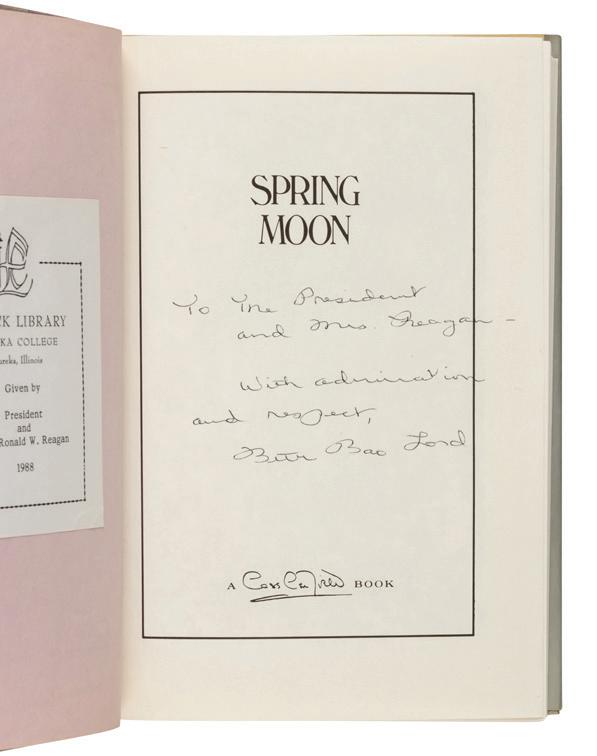 CK LIBRARY
KA COLLEGE
ureka, Illinois
Given by
President
and
Ronald W. Reagan
1988
SPRING
MOON
To The President
and Mrs. Reagan –
With admiration
and respect,
Bette Bao Lord
A Cass Canfield BOOK